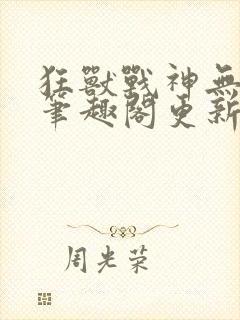 狂獸戰神無
筆趣閣更新
周光荣